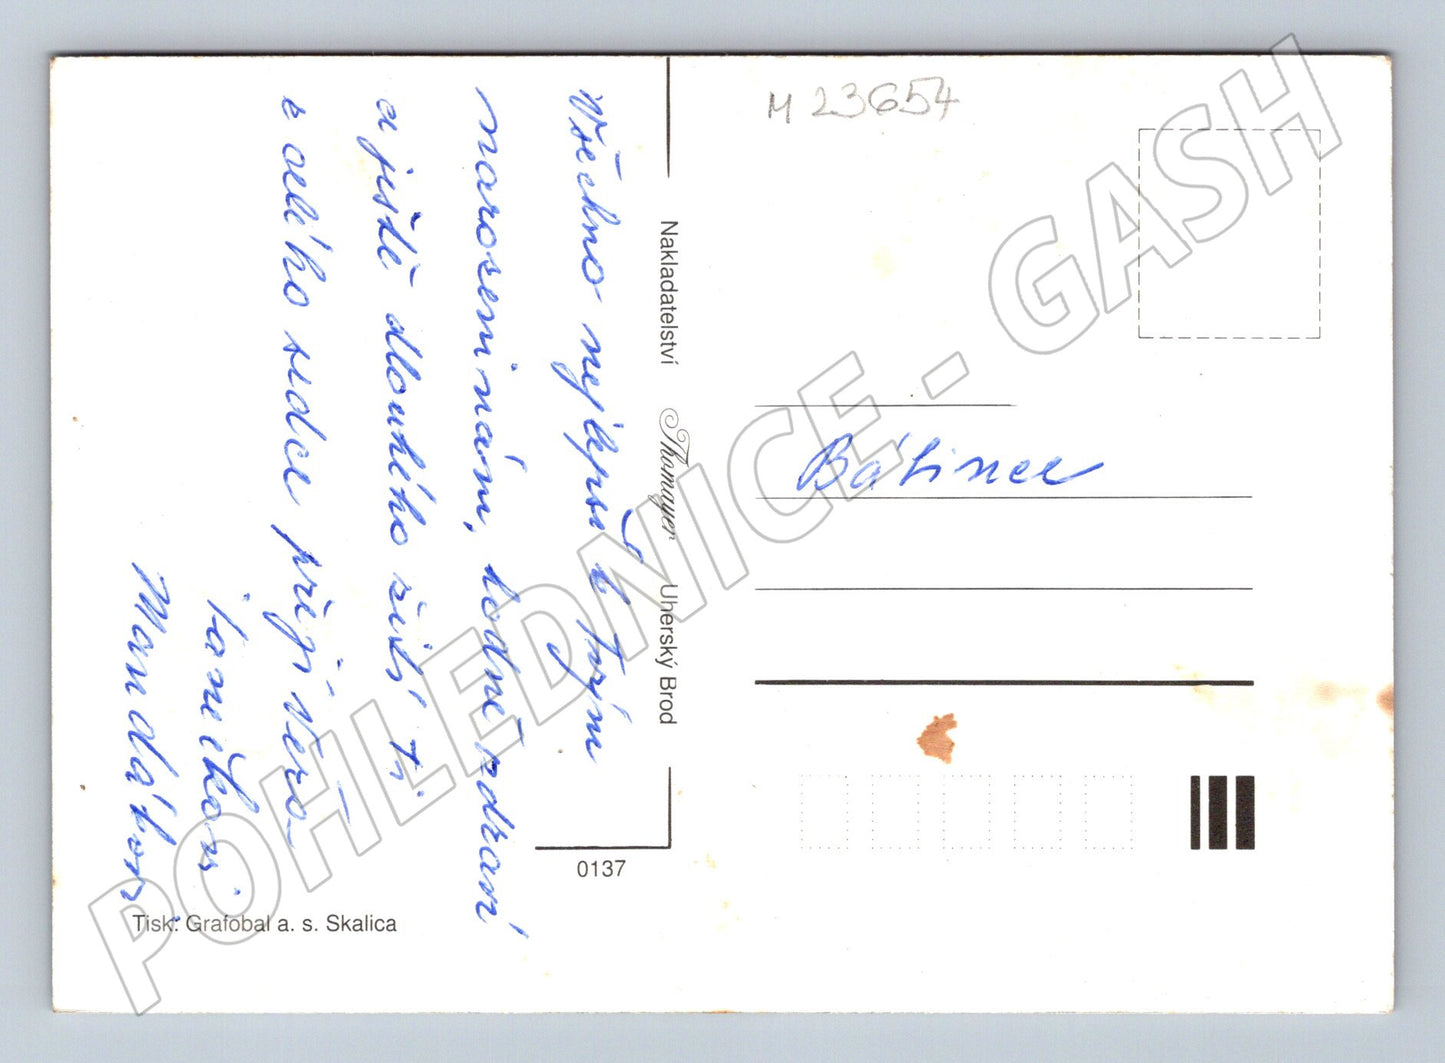 Všechno nejlepší k Tvým
narozeninám, hodně zdraví
a ještě dlouhého žití ti
z celého srdce přejí Věra
Mandátovi
M 23654
Nakladatelství Thomayer Uherský Brod
0137
Tisk: Grafobal a. s. Skalica
POHLEDNICE - GASH